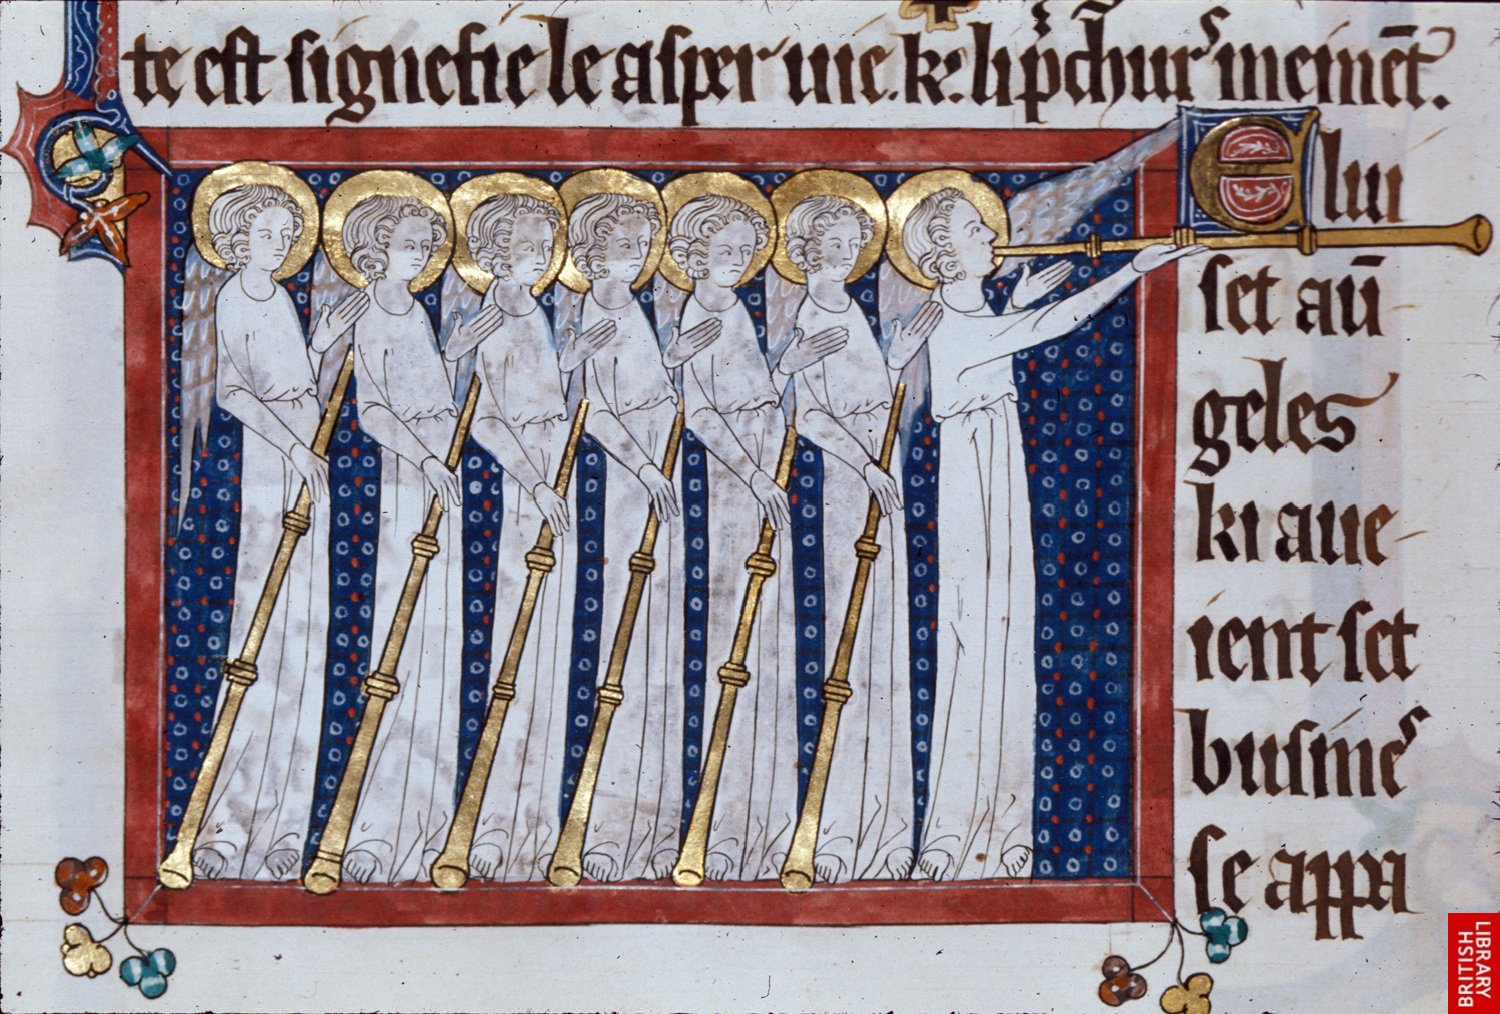 te est signefie le asper uie. k̕ li p̄ch̄ur̕ meinēt.
E lui
set aū
geles
ki aue
ient set
busines̕
se appa
BRITISH
LIBRARY